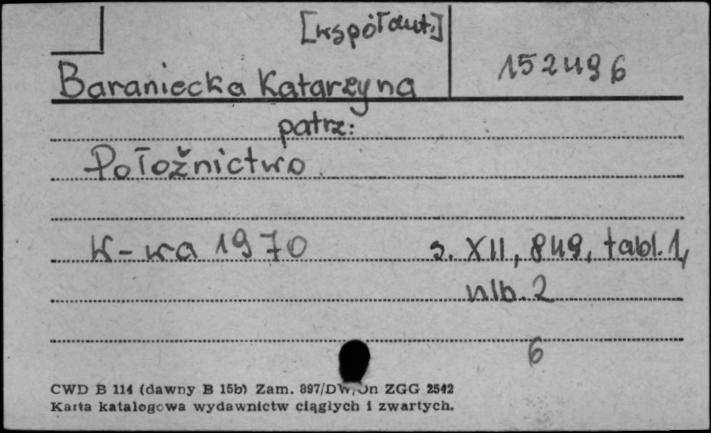 [współaut.]
152496
Baraniecka Katarzyna
patrz:
Położnictwo
W-wa 1970 s. XII, 849, tabl. 1,
nlb. 2
6
CWD B 114 (dawny B 15b) Zam. 897/DW/Jn ZGG 2542
Karta katalogowa wydawnictw ciągłych i zwartych.